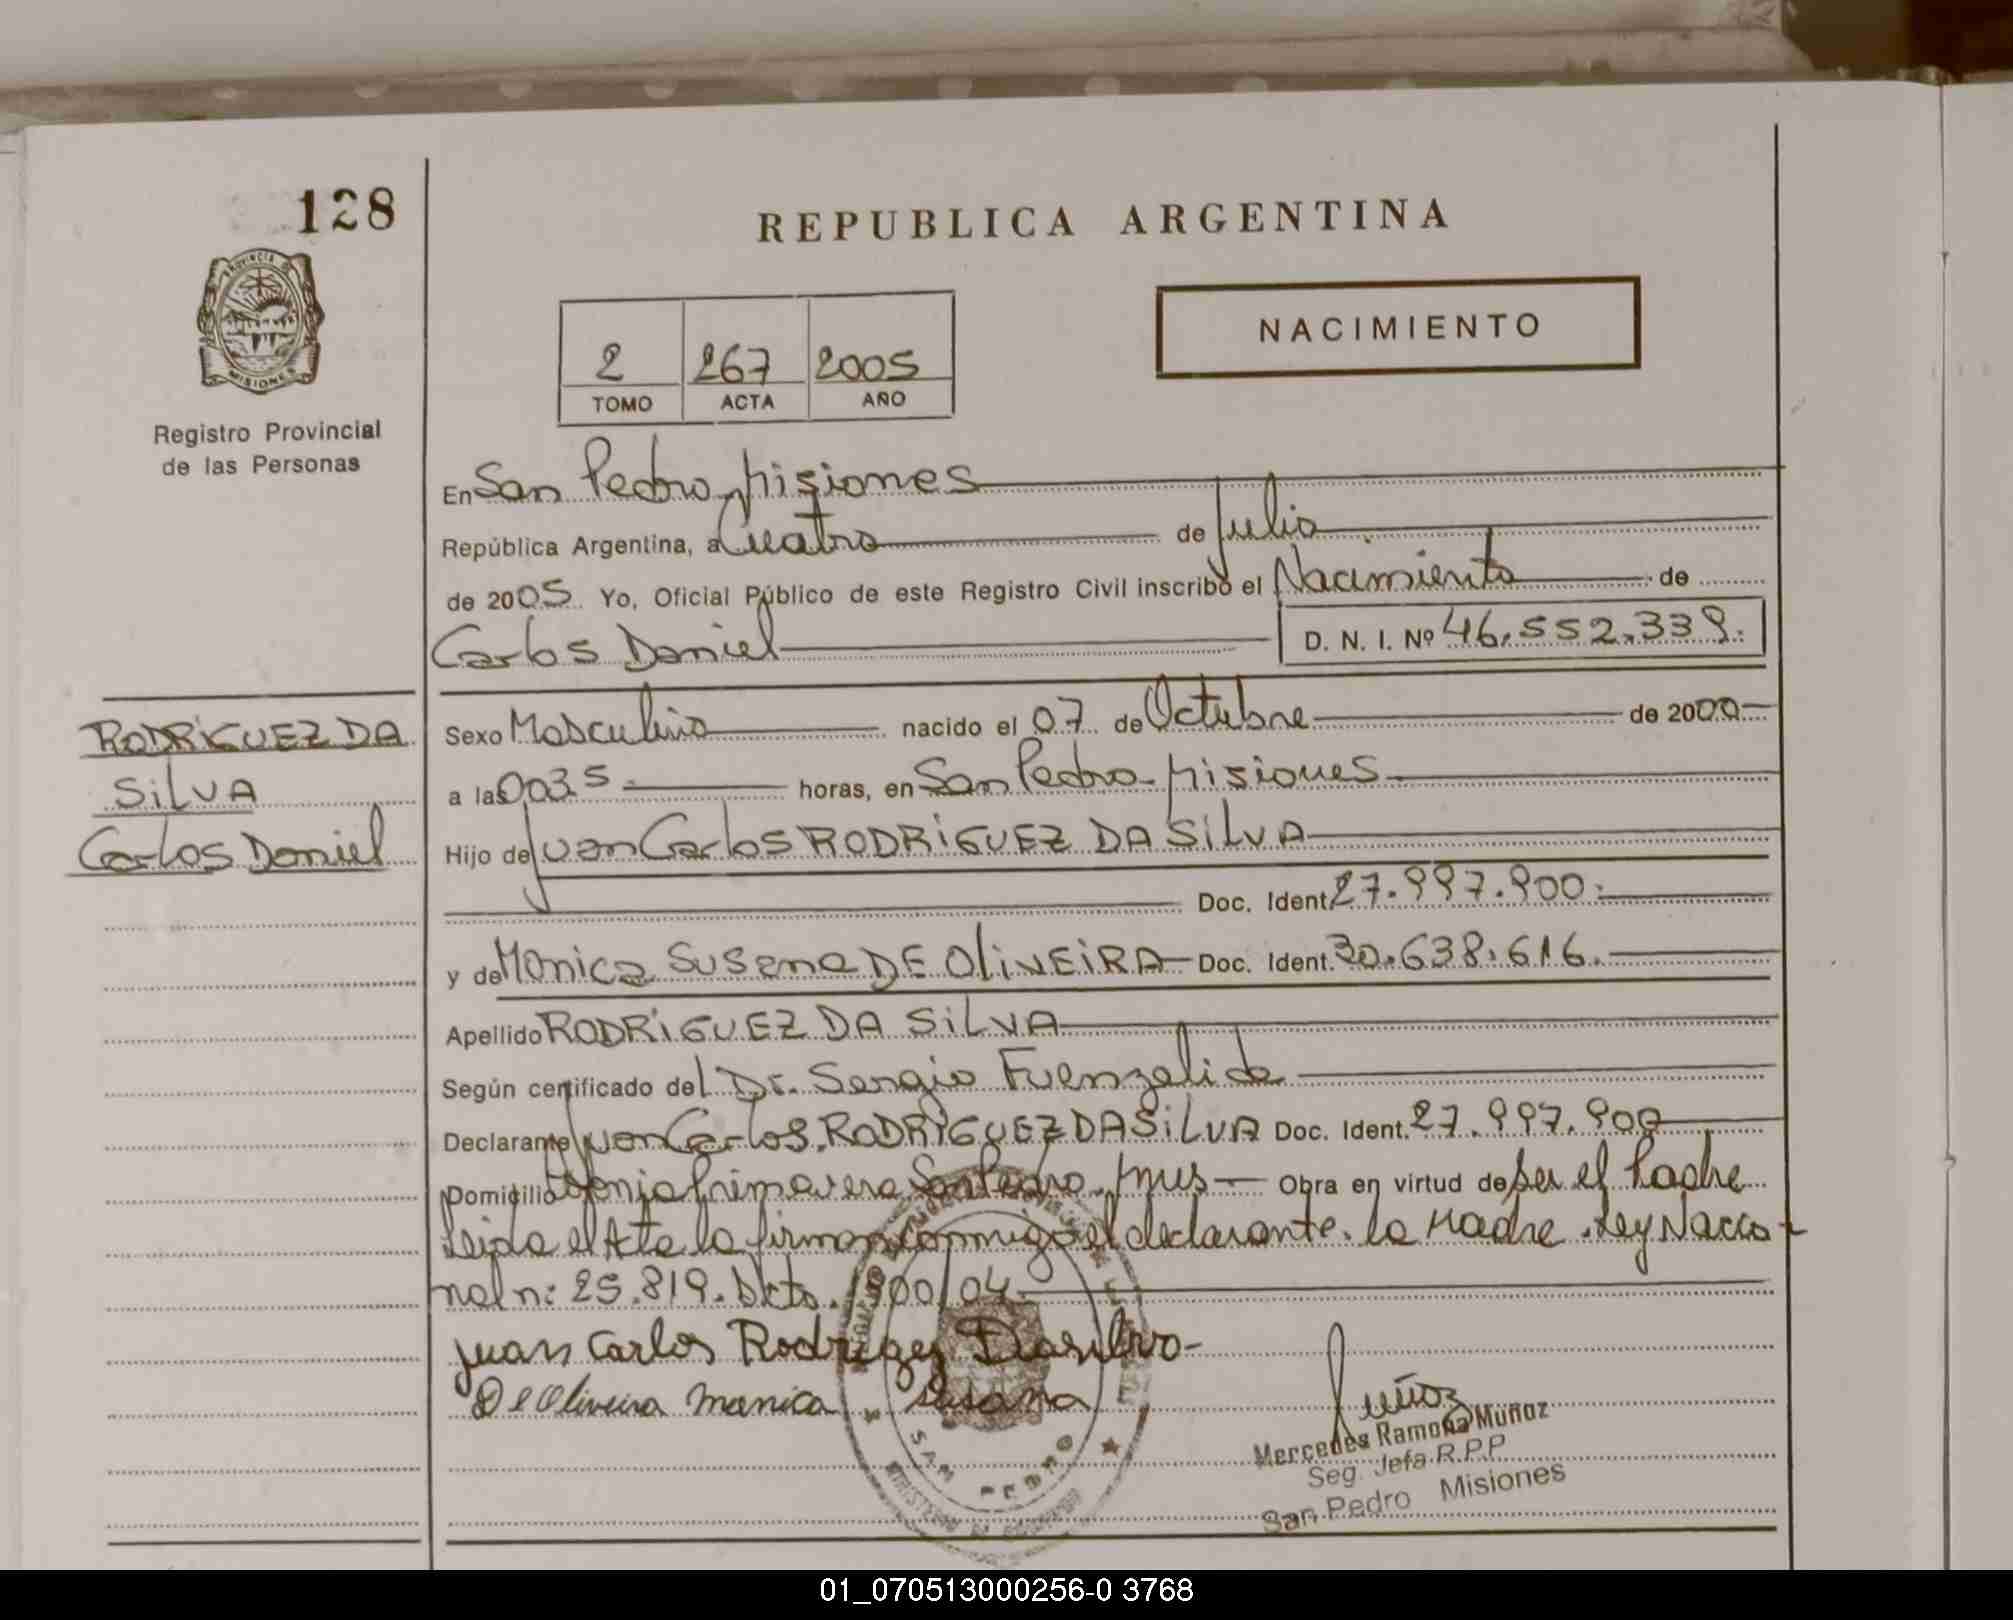 128
REPUBLICA ARGENTINA
PROVINCIA DE
MISIONES
NACIMIENTO
2 267 2005
TOMO ACTA AÑO
Registro Provincial
de las Personas
En San Pedro, Misiones
República Argentina, a Cuatro de Julio
de 2005 Yo, Oficial Público de este Registro Civil inscribo el Nacimiento de
Carlos Daniel D. N. I. Nº 46.552.339.
RODRÍGUEZ DA
SILVA
Carlos Daniel
Sexo Masculino nacido el 07 de Octubre de 2000
a las 0035 horas, en San Pedro - Misiones
Hijo de Juan Carlos RODRÍGUEZ DA SILVA
Doc. Ident. 27.997.900.
y de Monica Susana DE OLIVEIRA Doc. Ident. 30.638.616.
Apellido RODRÍGUEZ DA SILVA
Según certificado del Dr. Sergio Fuenzalida
Declarante Juan Carlos RODRÍGUEZ DA SILVA Doc. Ident. 27.997.900
Domicilio Colonia Primavera San Pedro. Mnes Obra en virtud de Ser el Padre
Leida el Ata la firman conmigo el declarante. la Madre. Ley Nacio-
nal n: 25.819. Dkto. 900/04
Juan Carlos Rodriguez Dasilva
De Oliveira Manica Susana
SAN PEDRO
Muñoz
Mercedes Ramona Muñoz
Seg. Jefa R.P.P
San Pedro Misiones
01_070513000256-0 3768